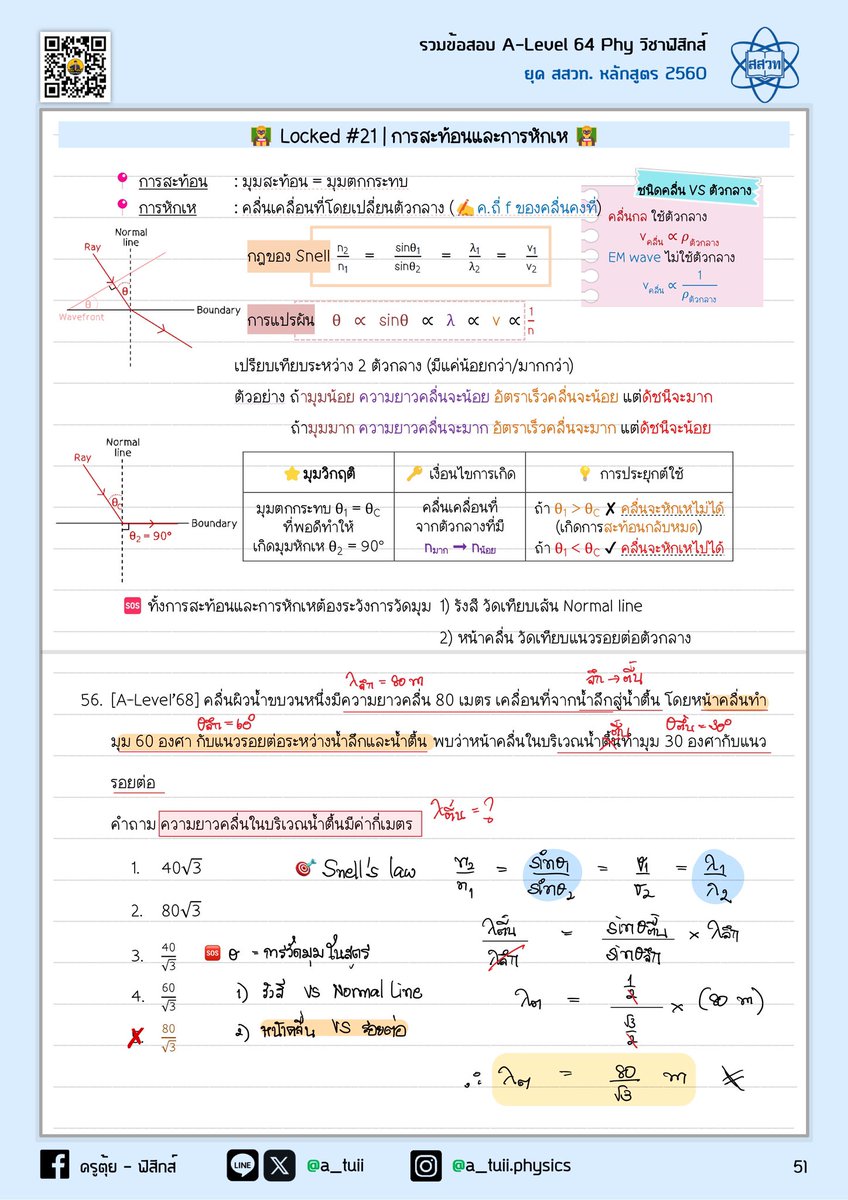 รวมข้อสอบ A-Level 64 Phy วิชาฟิสิกส์
ยุค สสวท. หลักสูตร 2560
สสวท
Locked #21 | การสะท้อนและการหักเห
การสะท้อน : มุมสะท้อน = มุมตกกระทบ
การหักเห : คลื่นเคลื่อนที่โดยเปลี่ยนตัวกลาง (✍️ค.ถี่ f ของคลื่นคงที่)
ชนิดคลื่น VS ตัวกลาง
คลื่นกล ใช้ตัวกลาง
vคลื่น ∝ ρตัวกลาง
EM wave ไม่ใช้ตัวกลาง
vคลื่น ∝ 1/ρตัวกลาง
Normal line
Ray
θ
θ
Wavefront
Boundary
กฎของ Snell n₂/n₁ = sinθ₁/sinθ₂ = λ₁/λ₂ = v₁/v₂
การแปรผัน θ ∝ sinθ ∝ λ ∝ v ∝ 1/n
เปรียบเทียบระหว่าง 2 ตัวกลาง (มีแค่น้อยกว่า/มากกว่า)
ตัวอย่าง ถ้ามุมน้อย ความยาวคลื่นจะน้อย อัตราเร็วคลื่นจะน้อย แต่ดัชนีจะมาก
ถ้ามุมมาก ความยาวคลื่นจะมาก อัตราเร็วคลื่นจะมาก แต่ดัชนีจะน้อย
Normal line
Ray
θc
Boundary
θ₂ = 90°
⭐ มุมวิกฤติ
🔑 เงื่อนไขการเกิด
💡 การประยุกต์ใช้
มุมตกกระทบ θ₁ = θc
ที่พอดีทำให้
เกิดมุมหักเห θ₂ = 90°
คลื่นเคลื่อนที่
จากตัวกลางที่มี
nมาก → nน้อย
ถ้า θ₁ > θc ✗ คลื่นจะหักเหไม่ได้
(เกิดการสะท้อนกลับหมด)
ถ้า θ₁ < θc ✓ คลื่นจะหักเหไปได้
🆘 ทั้งการสะท้อนและการหักเหต้องระวังการวัดมุม 1) รังสี วัดเทียบเส้น Normal line
2) หน้าคลื่น วัดเทียบแนวรอยต่อตัวกลาง
λลึก = 80 m
ลึก → ตื้น
56. [A-Level'68] คลื่นผิวน้ำขบวนหนึ่งมีความยาวคลื่น 80 เมตร เคลื่อนที่จากน้ำลึกสู่น้ำตื้น โดยหน้าคลื่นทำ
θลึก = 60°
ตื้น
θตื้น = 30°
มุม 60 องศา กับแนวรอยต่อระหว่างน้ำลึกและน้ำตื้น พบว่าหน้าคลื่นในบริเวณน้ำตื้นทำมุม 30 องศากับแนว
รอยต่อ
คำถาม ความยาวคลื่นในบริเวณน้ำตื้นมีค่ากี่เมตร
λตื้น = ?
1. 40√3
2. 80√3
3. 40/√3
4. 60/√3
80/√3
🎯 Snell's law n₂/n₁ = sinθ₁/sinθ₂ = v₁/v₂ = λ₁/λ₂
λตื้น/λลึก = sinθตื้น/sinθลึก × λลึก
🆘 θ = การวัดมุมในสูตร
1) รังสี VS Normal Line
2) หน้าคลื่น VS รอยต่อ
λต = (1/2)/(√3/2) × (80 m)
∴ λต = 80/√3 m
ครูตุ้ย - ฟิสิกส์
LINE
@a_tuii
@a_tuii.physics
51